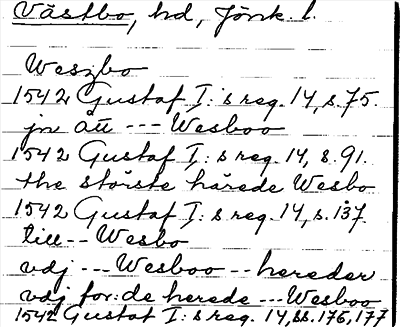 Västbo, hd, Jönk. l.
Weszbo
1542 Gustaf I:s reg. 14, s. 75.
jn att --- Wesboo
1542 Gustaf I:s reg. 14, s. 91.
the störste härede Wesbo
1542 Gustaf I:s reg. 14, s. 137
till -- Wesbo
vdj --- Wesboo -- hereder
vdj for:de herede --- Wesboo
1542 Gustaf I:s reg. 14, ss. 176, 177